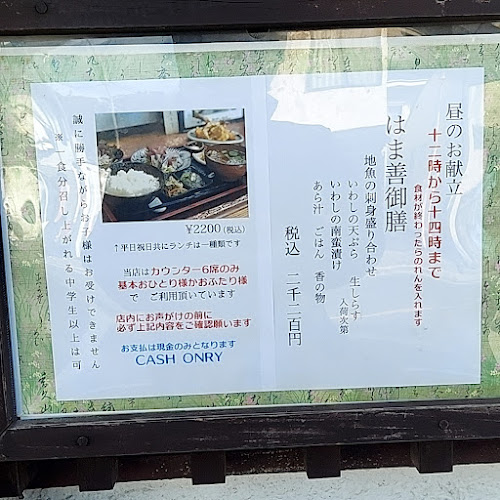 昼のお献立
十二時から十四時まで
食材が終わったらのれんを入れます
「はま善御膳
地魚の刺身盛り合わせ
いわしの天ぷら　生しらす
入荷次第
いわしの南蛮漬け
あら汁　ごはん　香の物
税込　二千二百円
¥2200(税込)
↑平日祝日共にランチは一種類です
当店はカウンター6席のみ
基本おひとり様かおふたり様
で　ご利用頂いています
店内にお声がけの前に
必ず上記内容をご確認願います
お支払は現金のみとなります
CASH ONRY
誠に勝手ながらお子様はお受けできません
※一食分召し上がれる中学生以上は可